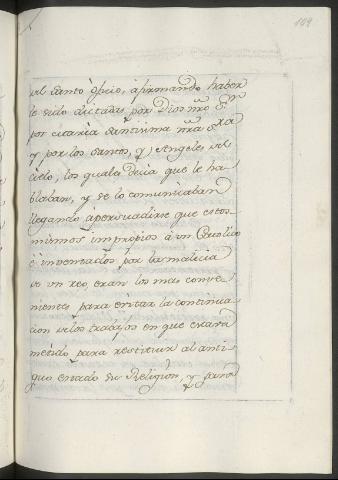 109
del Santo oficio, afirmando haber
le sido dictadas por Dios nro Sr
por Maria Santisima nra Sra
y por los Santos, y Angeles del
cielo, los quales decia que le ha
blaban, y se lo comunicaban
llegando á persuadirse que estos
mismos impropios á un Catolico
é inventados por la malicia
de un reo, eran los mas conve
nientes para evitar la continua
cion de los trabajos en que estava
metido para restituir al anti
guo estado su Religion, y